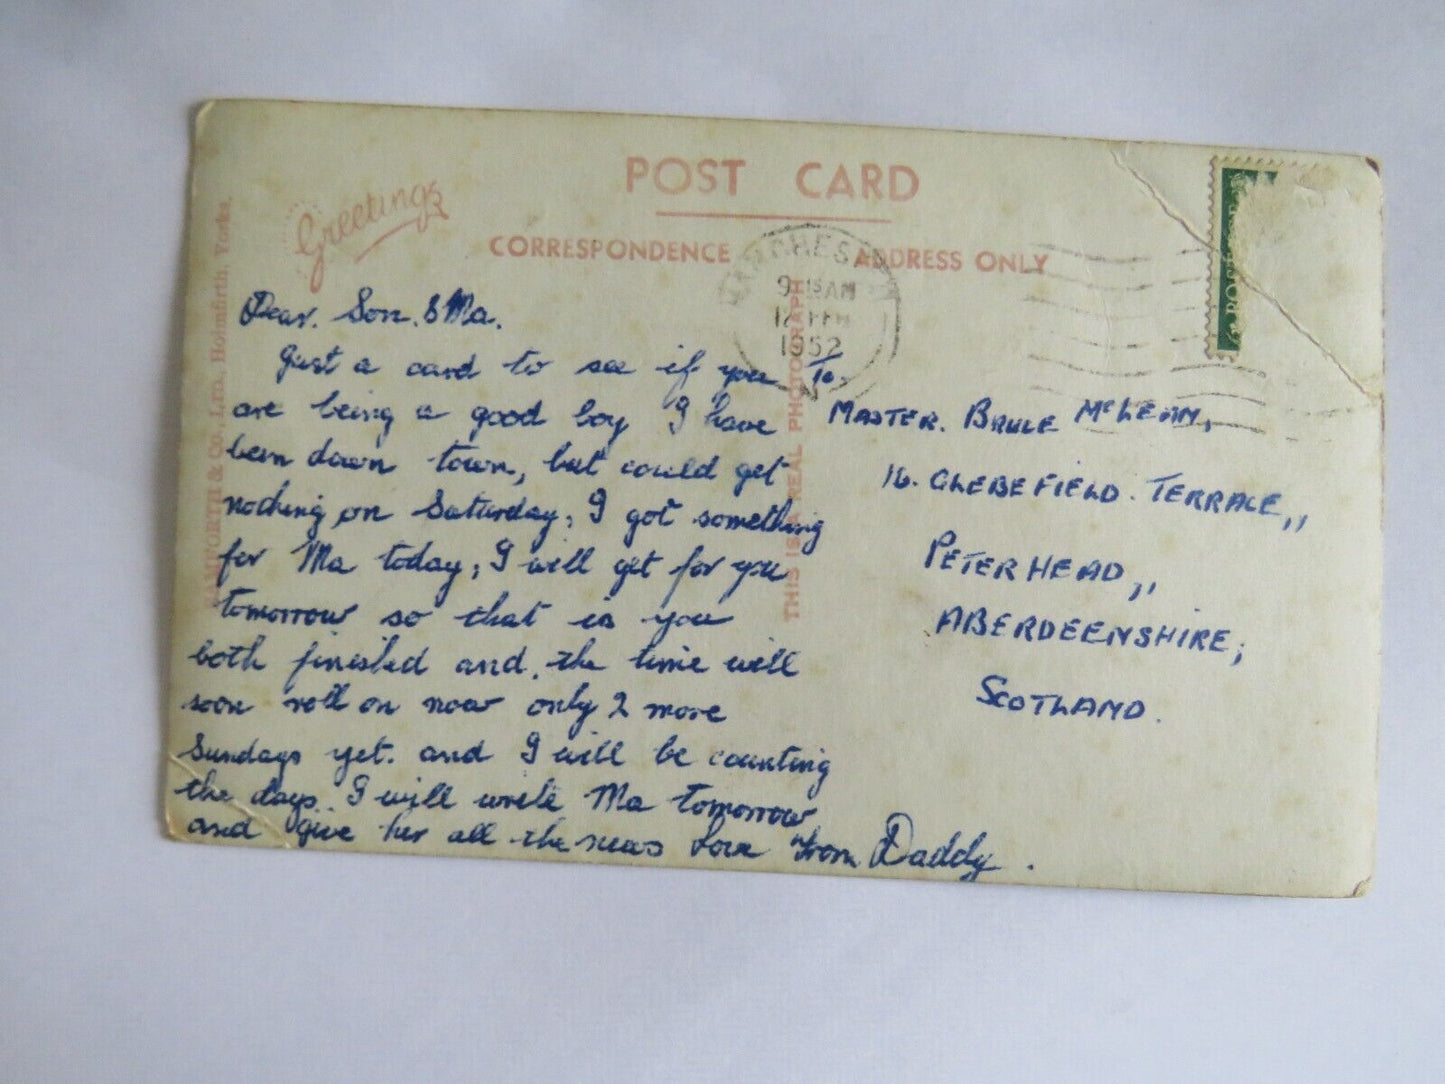 POST CARD
Greetings
CORRESPONDENCE
ADDRESS ONLY
BAMFORTH & Co., LTD., Holmfirth, Yorks.
THIS IS A REAL PHOTOGRAPH
MANCHESTER
9 15 AM
FEB
1952
Dear. Son. & Ma.
Just a card to see if you
are being a good boy I have
been down town, but could get
nothing on Saturday, I got something
for Ma today, I will get for you
tomorrow so that is you
both finished and, the time will
soon roll on now only 2 more
Sundays yet. and I will be counting
the days.. I will write Ma tomorrow
and give her all the news Love from Daddy.
To.
MASTER. BRUCE McLEAN,
16. GLEBEFIELD. TERRACE,,
PETERHEAD,,
ABERDEENSHIRE;
SCOTLAND.